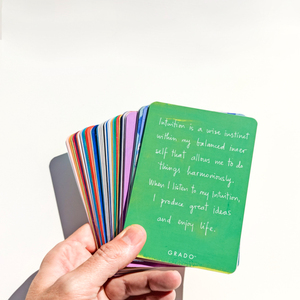 Intuition is a wise instinct
within my balanced inner
self that allows me to do
things harmoniously.
When I listen to my Intuition,
I produce great ideas
and enjoy life.
ORADO